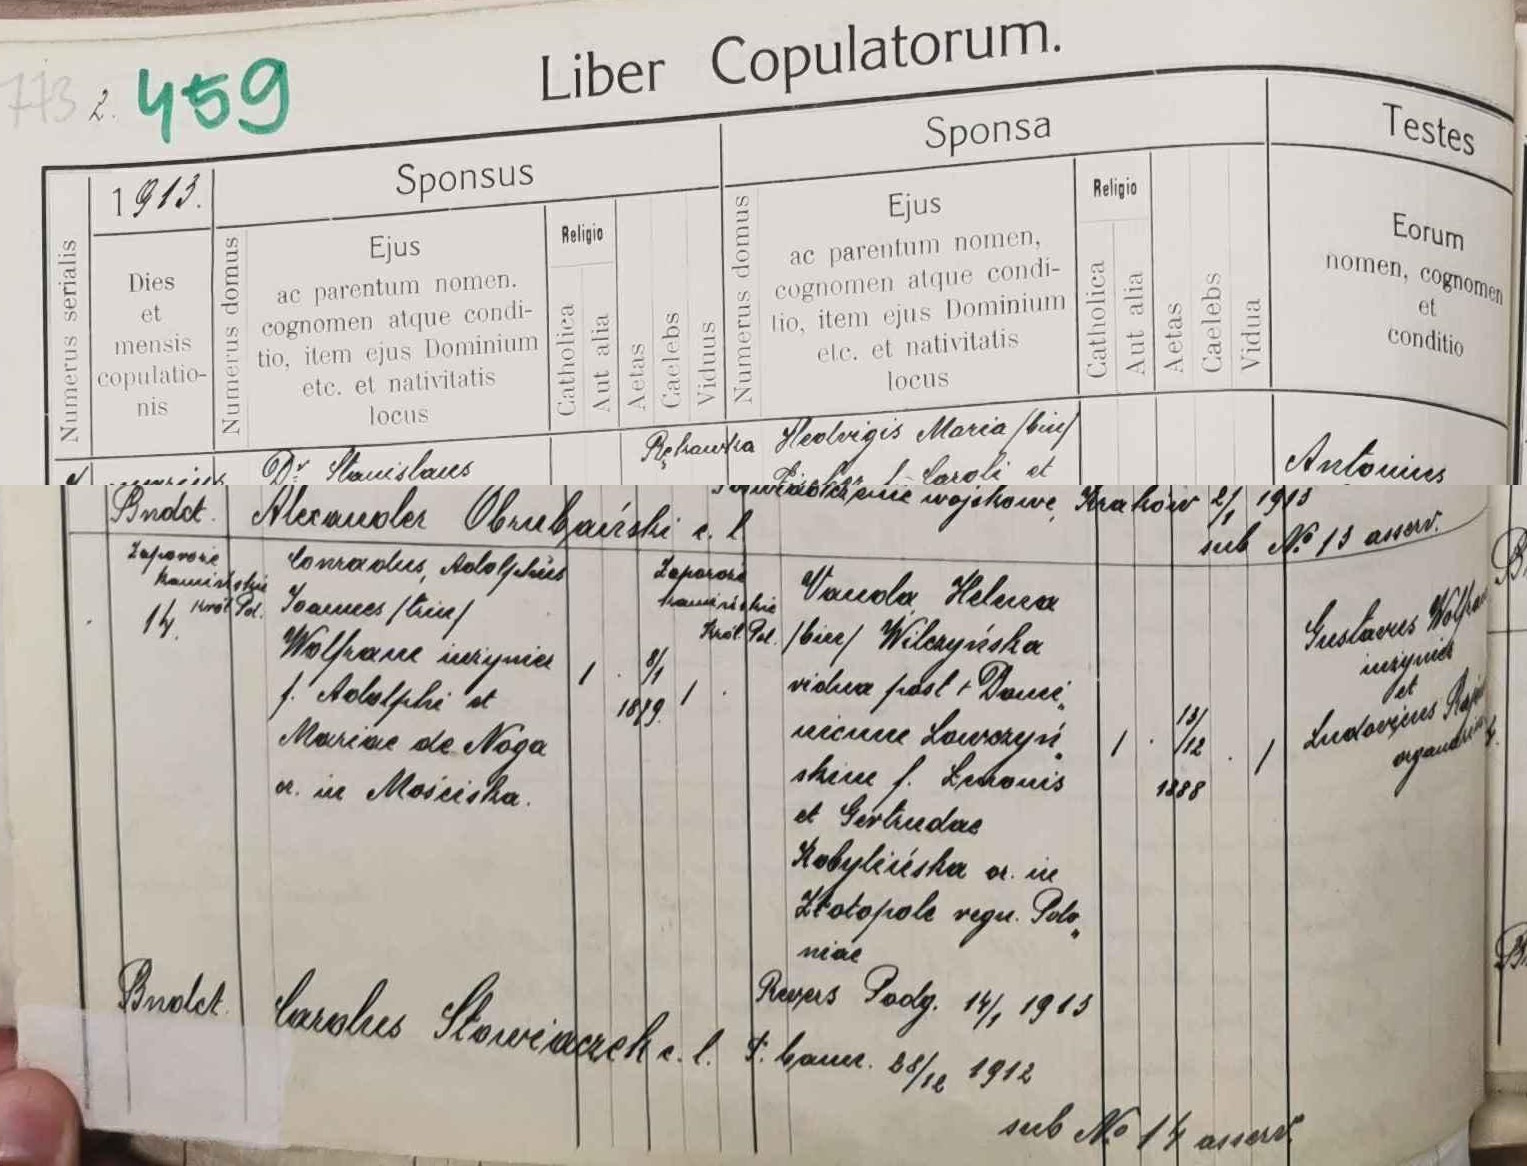 773
2. 459
Liber Copulatorum.
Numerus serialis
1913.
Dies
et
mensis
copulatio-
nis
Sponsus
Numerus domus
Ejus
ac parentum nomen.
cognomen atque condi-
tio, item ejus Dominium
etc. et nativitatis
locus
Religio
Catholica
Aut alia
Aetas
Caelebs
Viduus
Sponsa
Numerus domus
Ejus
ac parentum nomen,
cognomen atque condi-
tio, item ejus Dominium
etc. et nativitatis
locus
Religio
Catholica
Aut alia
Aetas
Caelebs
Vidua
Testes
Eorum
nomen, cognomen
et
conditio
Dr Stanislaus
Rękawka
Hedvigis Maria /bin/
f. Caroli et
Antonius
Bndct. Alexander Obrubański c. l.
wojskowe, Kraków 2/1 1913
sub No 13 asserv.
Zaporoże
kamieńskie
Król. Pol.
14.
Conradus, Adolphus
Joannes /trin/
Wolfram inżynier
f. Adolphi et
Mariae de Noga
or. in Mościska.
1 .
8/1
1879.
1 .
Zaporoże
kamieńskie
Król. Pol.
Vanda Helena
/bin/ Wilczyńska
vidua post + Domi„
nicum Lowczyń„
skim f. Zenonis
et Gertrudae
Kobylińska or. in
Złotopole regn. Polo„
niae
1 .
13/
/12
1888
. 1
Gustavus Wolfram
inżynier
et
Ludovicus
Bndct. Carolus Słowiaczek c. l.
Revers Podg. 14/1 1913
28/12 1912
sub No 14 asserv.